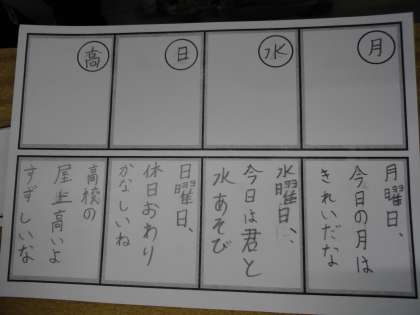 月
月曜日、
今日の月は
きれいだなな
水
水曜日、
今日は君と
水あそび
日
日曜日、
休日おわり
かなしいね
高
高校の
屋上高いよ
すずしいな